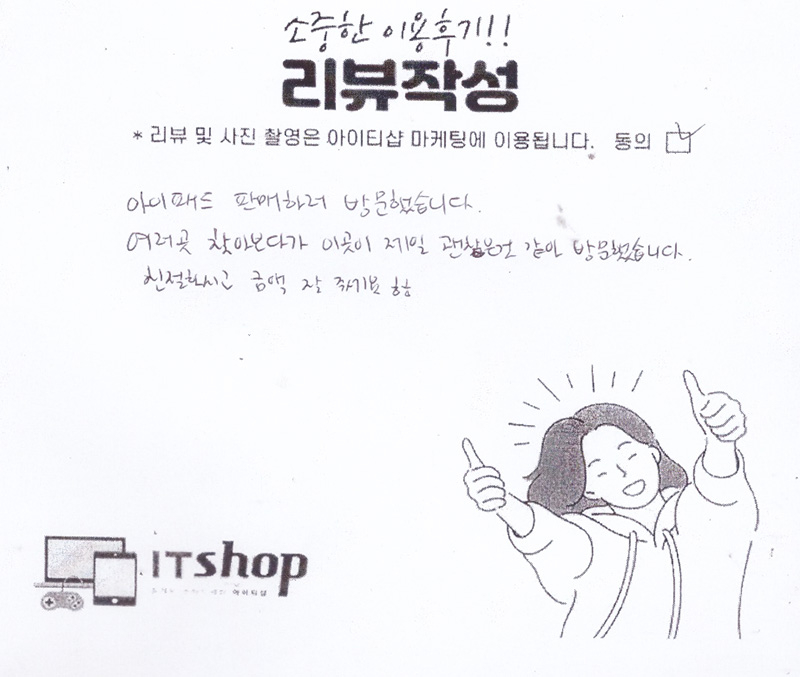 소중한 이용후기!!
리뷰작성
* 리뷰 및 사진 촬영은 아이티샵 마케팅에 이용됩니다. 동의
아이패드 판매하러 방문했습니다.
여러곳 찾아보다가 이곳이 제일 괜찮은것 같아 방문했습니다.
친절하시고 금액 잘 쳐줘요 ㅎㅎ
ITshop
아이티샵